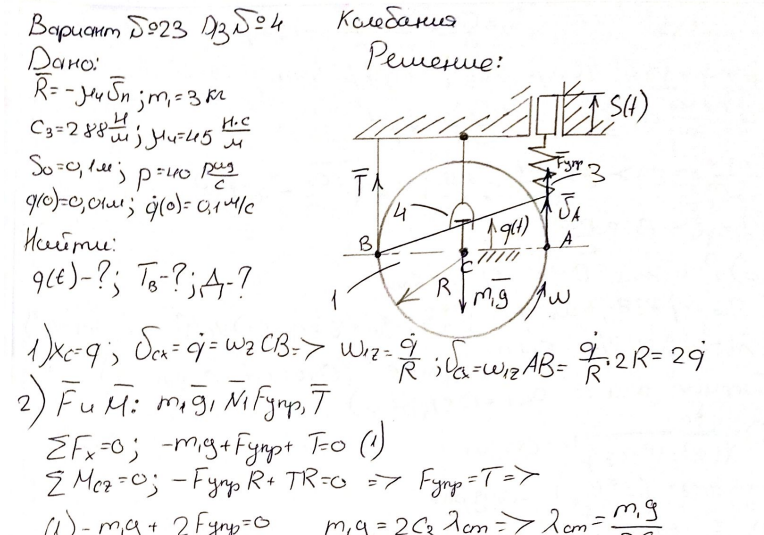 Вариант №23 ДЗ №4 Колебания
Дано:
Решение:
R̅ = -μ₄V̅п ; m₁ = 3 кг
C₃ = 288 Н/м ; μ₄ = 45 Н·с/м
S₀ = 0,1м ; p = 40 рад/с
q(0) = 0,01м ; q̇(0) = 0,1 м/с
Найти:
q(t) - ? ; T_B - ? ; Д - ?
S(t)
F̅упр
3
T̅
V̅_A
4
q(t)
B
A
C
R
m₁g̅
1
ω
1) x_C = q ; V_Cx = q̇ = ω_z CB => ω₁z = q̇/R ; V_a = ω₁z AB = q̇/R · 2R = 2q̇
2) F̅ и M̅ : m₁g̅, N̅, F̅упр, T̅
ΣF_x = 0 ; -m₁g + Fупр + T = 0 (1)
ΣM_Cz = 0 ; -Fупр R + TR = 0 => Fупр = T =>
(1) - m₁g + 2Fупр = 0 m₁g = 2C₃ λст => λст = m₁g